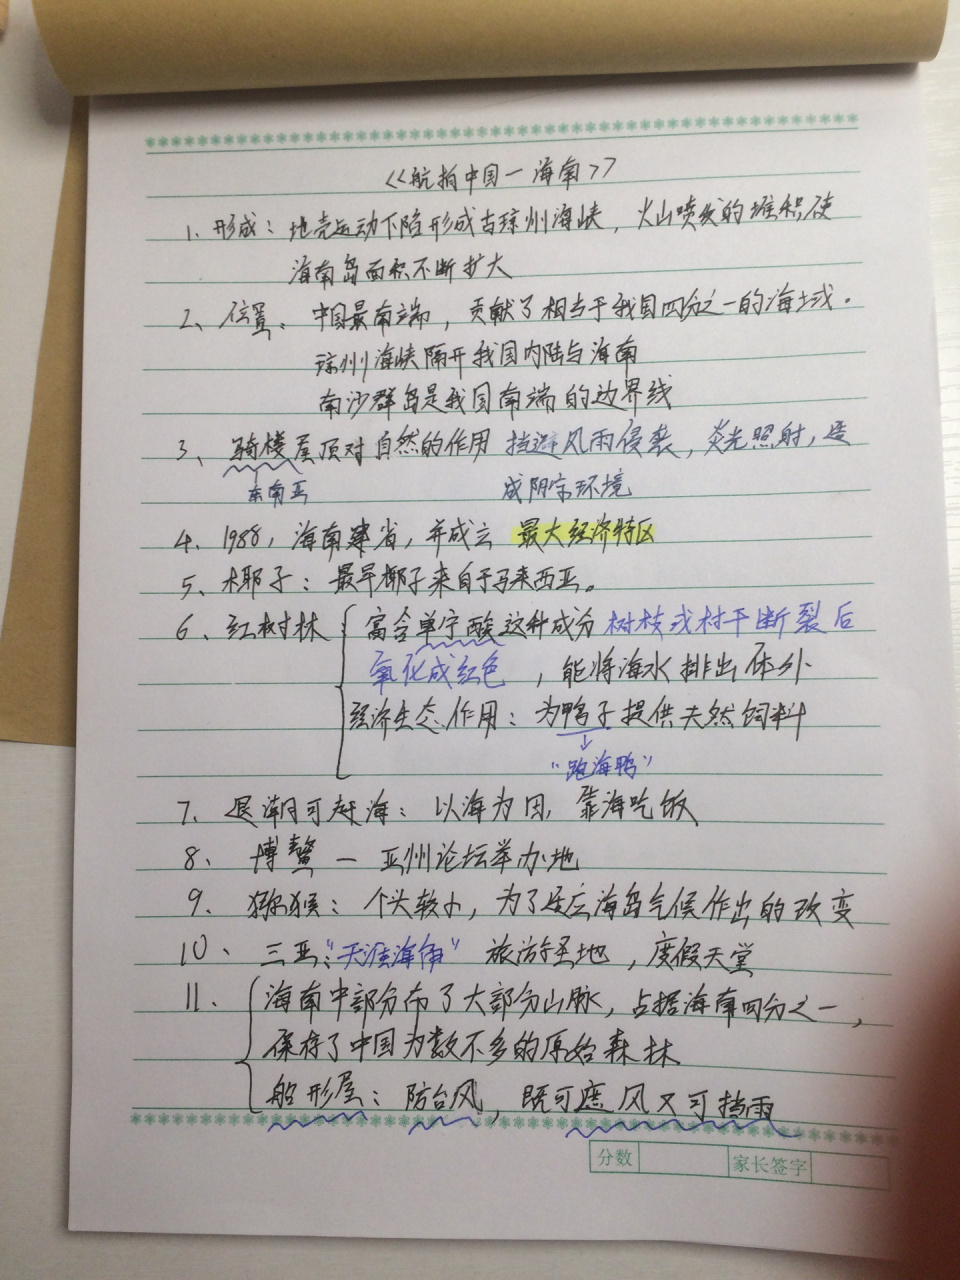 《航拍中国一海南》
1、形成：地壳运动下陷形成古琼州海峡，火山喷发的堆积使
海南岛面积不断扩大
2、位置：中国最南端，贡献了相当于我国四分之一的海域。
琼州海峡隔开我国内陆与海南
南沙群岛是我国南端的边界线
3、骑楼屋顶对自然的作用 挡避风雨侵袭，炎光照射，造
东南亚 成阴凉环境
4、1988，海南建省，并成立 最大经济特区
5、椰子：最早椰子来自于马来西亚。
6、红树林 富含单宁酸这种成分 树枝或树干断裂后
氧化成红色，能将海水排出体外
经济生态作用：为鸭子提供天然饲料
“跑海鸭”
7、退潮可赶海：以海为田，靠海吃饭
8、博鳌 — 亚州论坛举办地
9、猕猴：个头较小，为了适应海岛气候作出的改变
10、三亚：“天涯海角” 旅游圣地，度假天堂
11、海南中部分布了大部分山脉，占据海南四分之一，
保存了中国为数不多的原始森林
船形屋：防台风，既可遮风又可挡雨
分数 家长签字